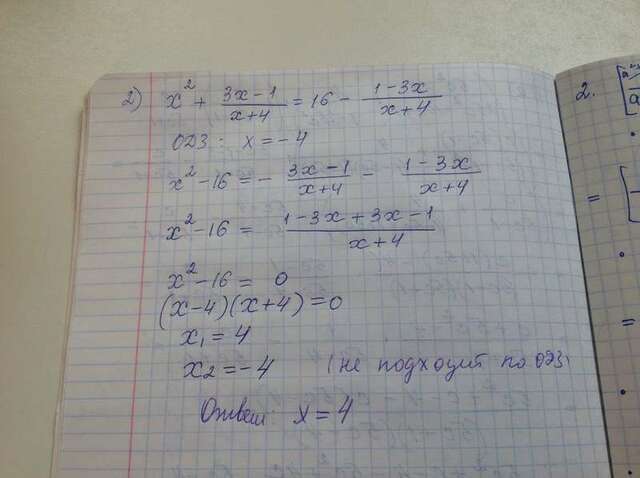 2) x² + (3x-1)/(x+4) = 16 - (1-3x)/(x+4)
ОДЗ: x = -4
x² - 16 = - (3x-1)/(x+4) - (1-3x)/(x+4)
x² - 16 = (1-3x+3x-1)/(x+4)
x² - 16 = 0
(x-4)(x+4) = 0
x₁ = 4
x₂ = -4 (не подходит по ОДЗ)
Ответ: x = 4
2.
=
=